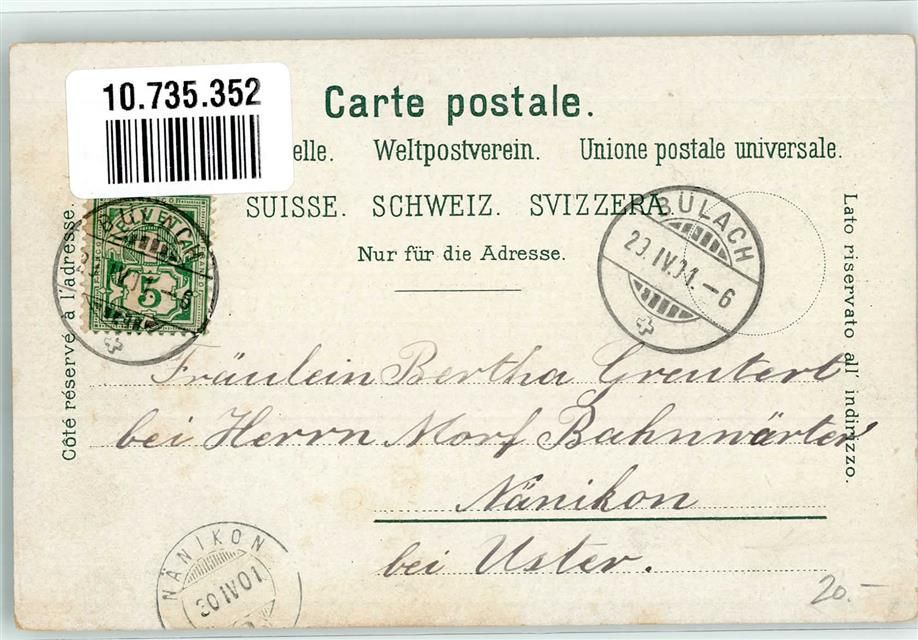 10.735.352
Carte postale.
elle. Weltpostverein. Unione postale universale.
SUISSE. SCHWEIZ. SVIZZERA.
Nur für die Adresse.
Côté réservé à l'adresse
Lato riservato all' indirizzo.
BÜLACH
29.IV.01.–6
Fräulein Bertha Greutert
bei Herrn Morf Bahnwärter
Nänikon
bei Uster.
NÄNIKON
20.–